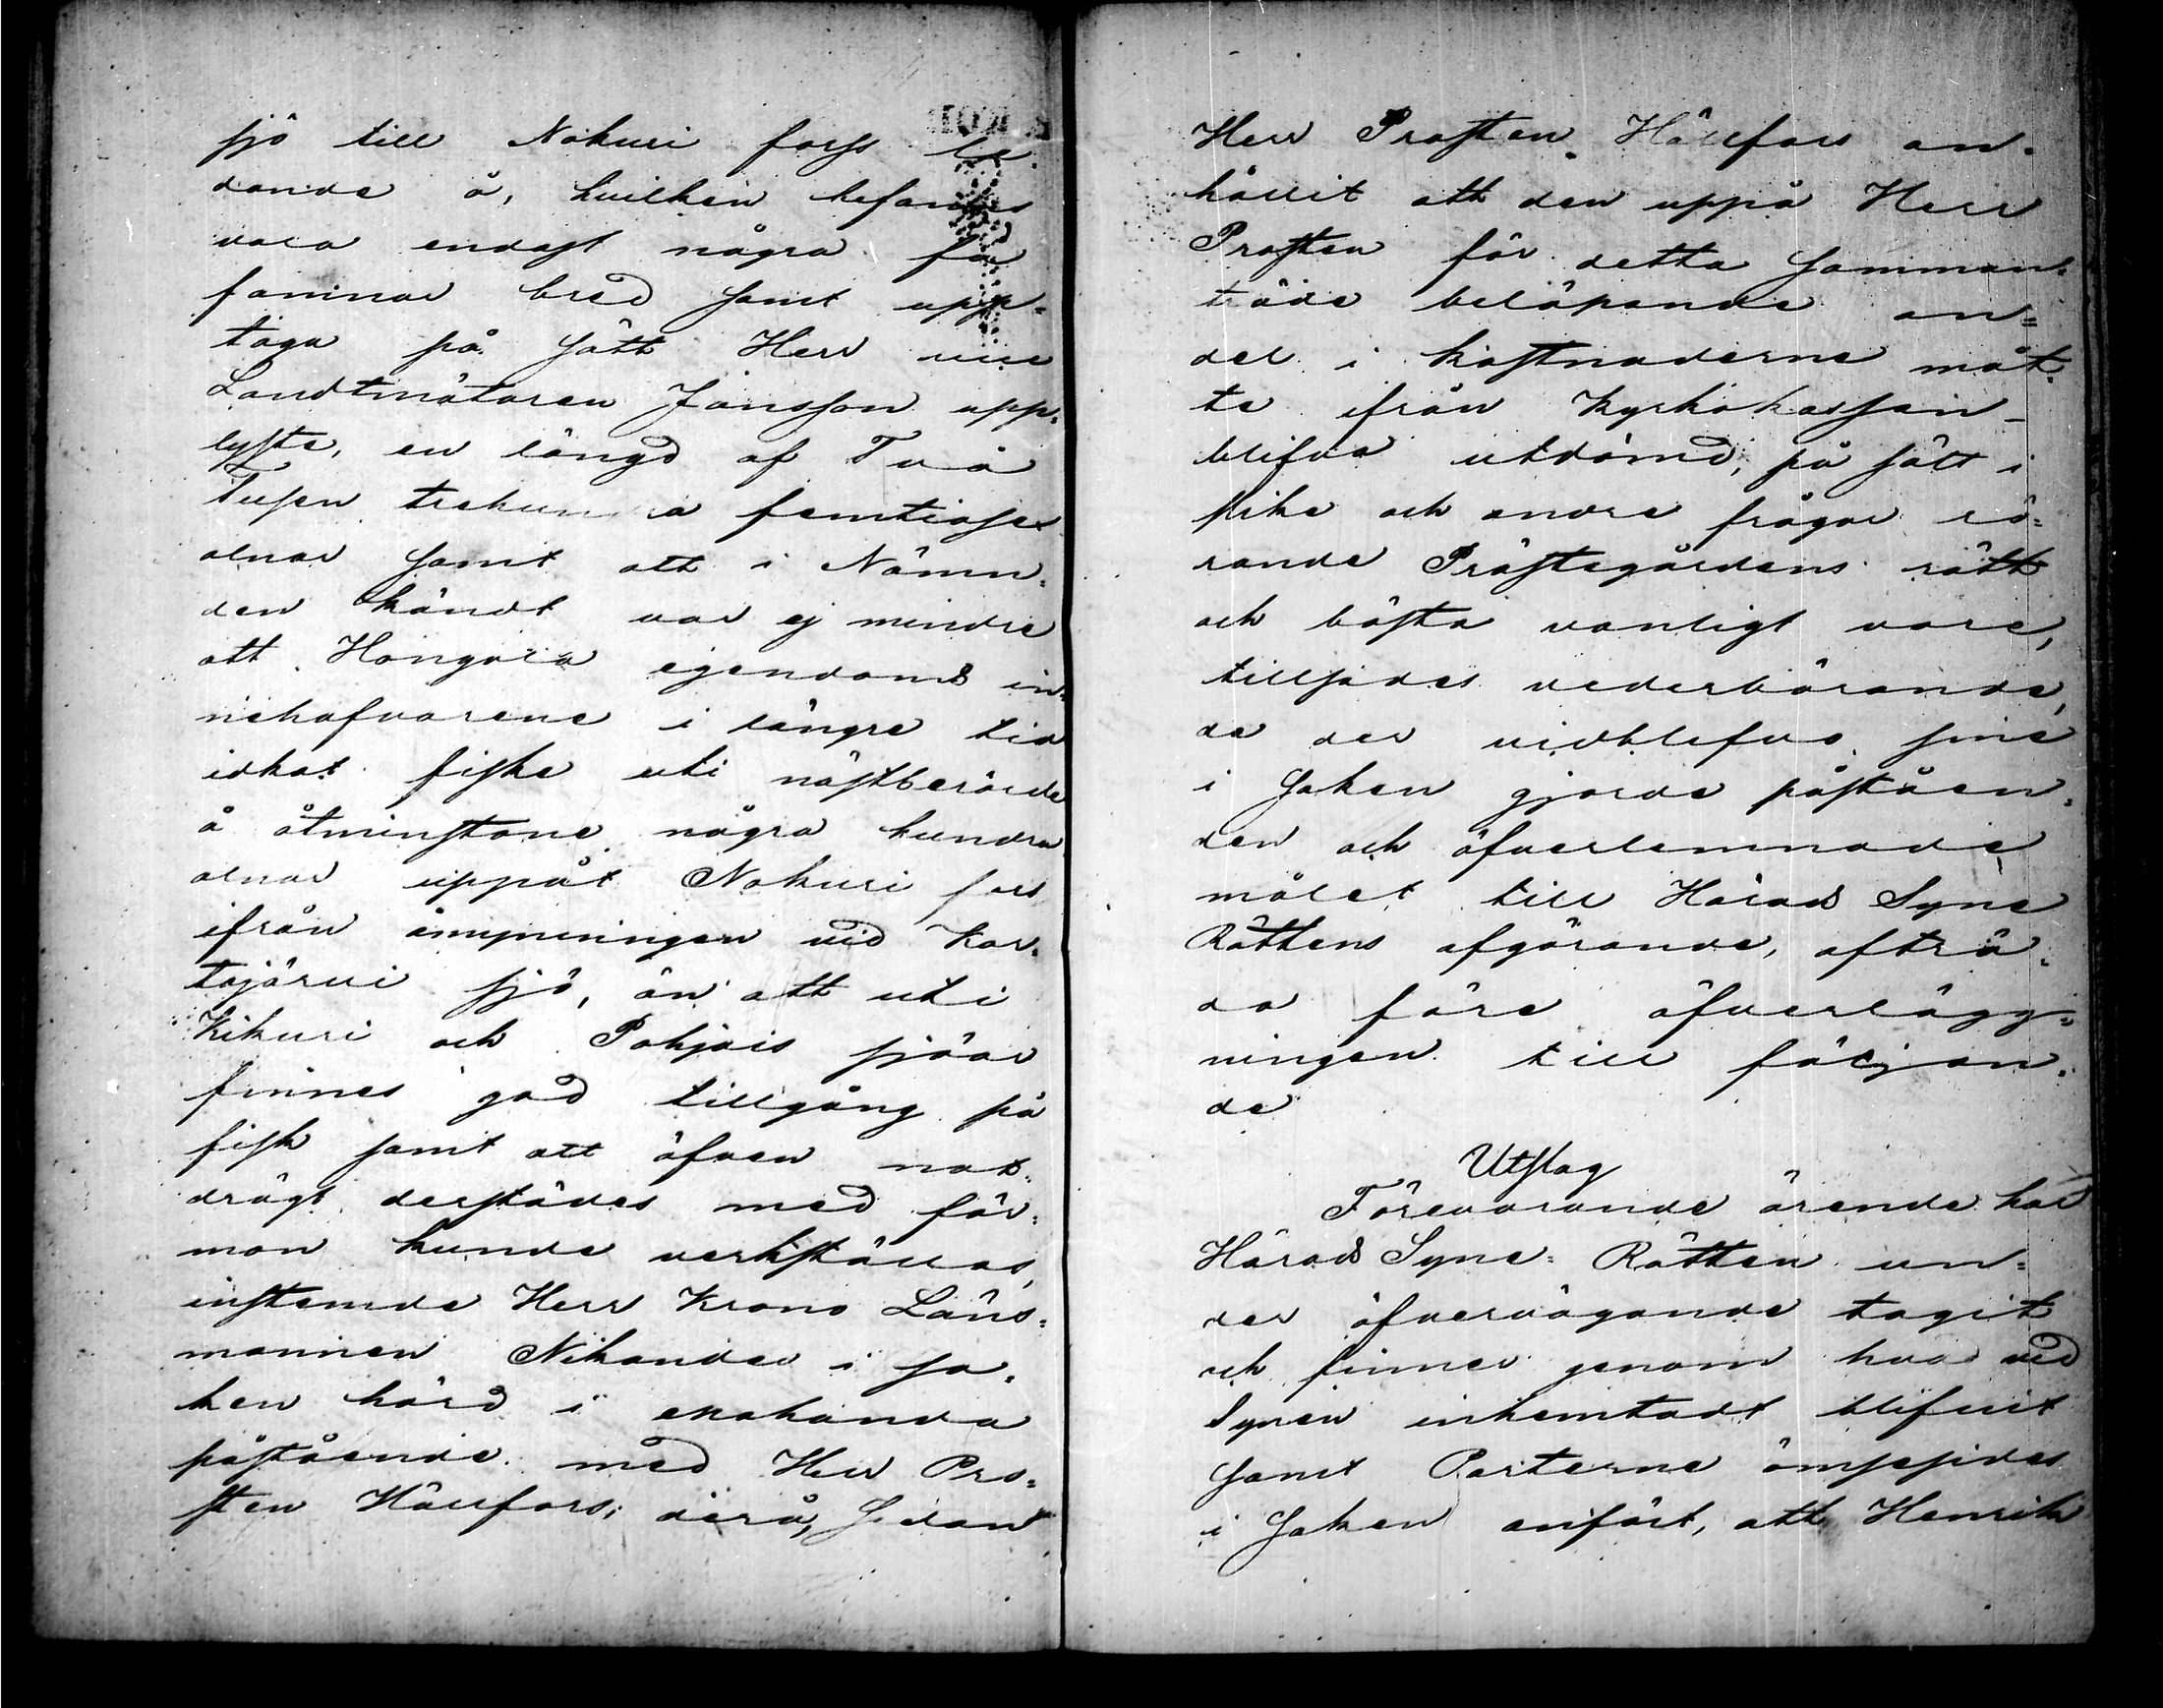 sjö till Nokuri forss le-
dande å, hvilken befanns
vara endast några få
famnar bred samt upp-
taga på sätt Herr vice
Landtmätaren Jansson upp-
lyste, en längd af Två
Tusen trehundra femtiosex
alnar samt att i Nämn-
den kändt var ej mindre
att Hongola egendoms in-
nehafvarene i längre tid
idkat fiske uti nästberörde
å åtminstone några hundra
alnar uppåt Nokuri fors
ifrån åmynningen vid Kar-
tajärvi sjö, än att uti
Kikuri och Pohjois sjöar
finnes god tillgång på
fisk samt att äfven not-
drägt derstädes med för-
mon kunde verkställas,
instemde Herr Krono Läns-
mannen Nikander i sa-
ken hörd i enahanda
påstående med Herr Pro-
sten Hällfors; derå, sedan
Herr Prosten Hällfors an-
hållit att den uppå Herr
Prosten för detta samman-
träde belöpande an=
del i kostnaderne måt-
te ifrån Kyrkokassan
blifva utdömd, på sätt i
slike och andre frågor rö=
rande Prästegårdens rätt
och bästa vanligt vore,
tillsades vederbörande,
de der vidblefvo sine
i saken gjorde påståen-
den och öfverlemnade
målet till Härads Syne
Rättens afgörande, afträ-
da före öfverlägg-
ningen till följan-
de
Utslag
Förevarande ärende har
Härads Syne= Rätten un=
der öfvervägande tagit
och finner genom hvad vid
Synen inhemtadt blifvit
samt Parterne ömsesides
i saken anfört, att Henrik